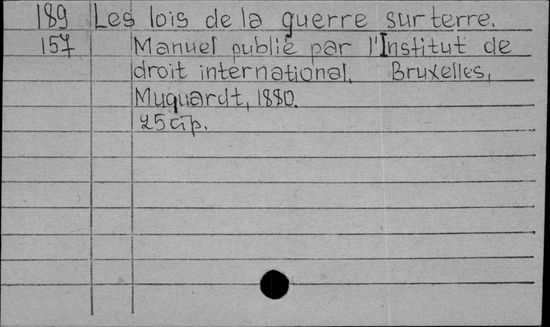 189 Les lois de la guerre sur terre.
157 Manuel publié par l'Institut de
droit international. Bruxelles,
Muquardt, 1880.
25 cip.